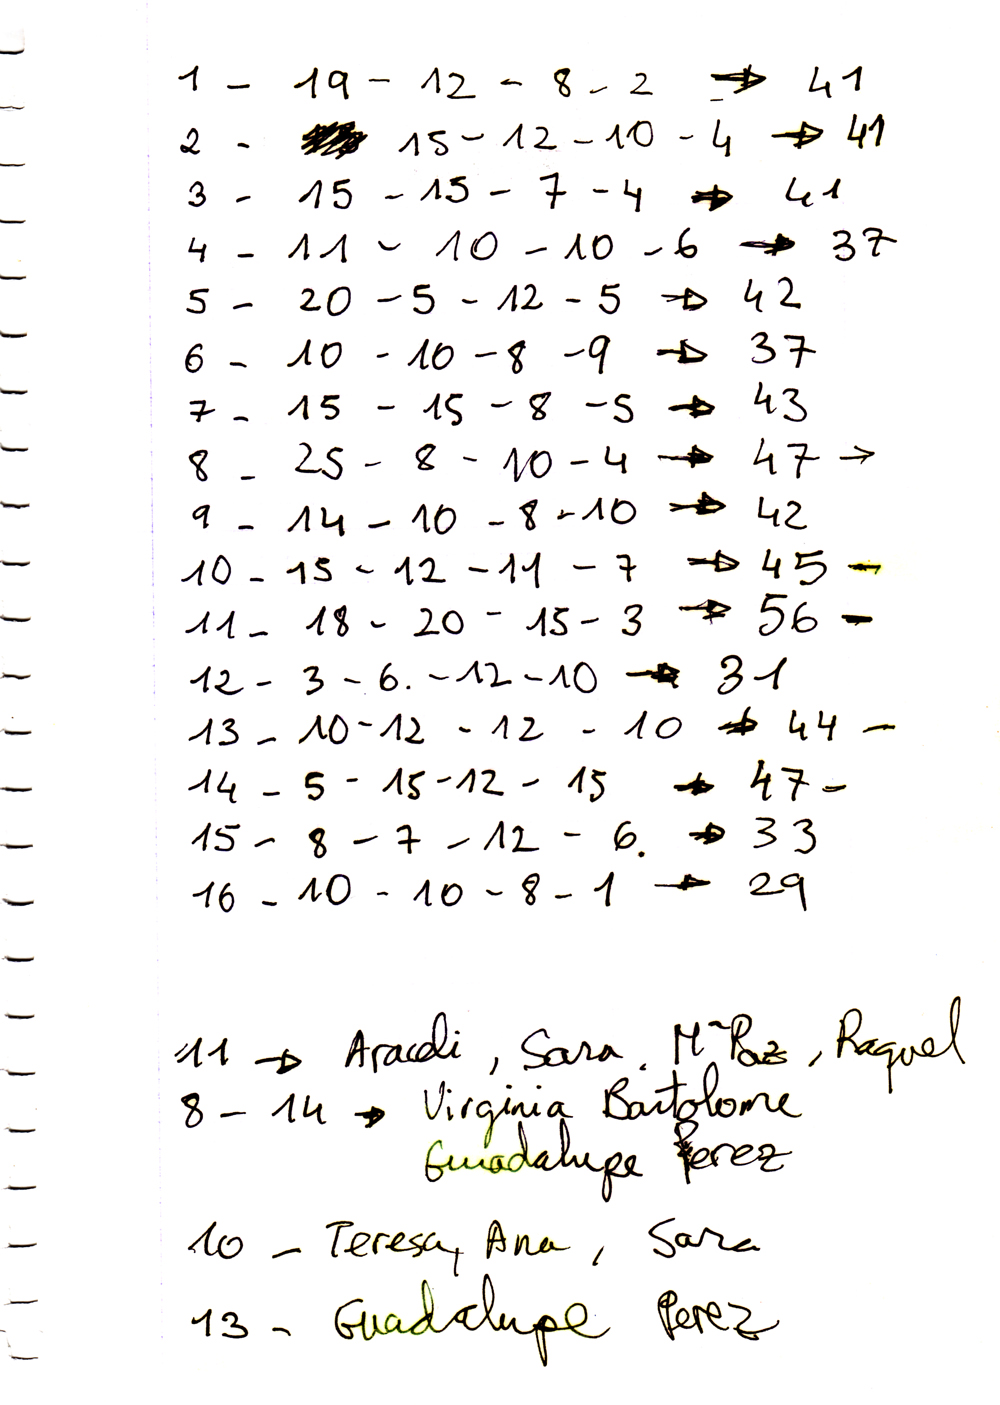 1 - 19 - 12 - 8 - 2 → 41
2 - 15 - 12 - 10 - 4 → 41
3 - 15 - 15 - 7 - 4 → 41
4 - 11 - 10 - 10 - 6 → 37
5 - 20 - 5 - 12 - 5 → 42
6 - 10 - 10 - 8 - 9 → 37
7 - 15 - 15 - 8 - 5 → 43
8 - 25 - 8 - 10 - 4 → 47 →
9 - 14 - 10 - 8 - 10 → 42
10 - 15 - 12 - 11 - 7 → 45 -
11 - 18 - 20 - 15 - 3 → 56 -
12 - 3 - 6. - 12 - 10 → 31
13 - 10 - 12 - 12 - 10 → 44 -
14 - 5 - 15 - 12 - 15 → 47 -
15 - 8 - 7 - 12 - 6. → 33
16 - 10 - 10 - 8 - 1 → 29
11 → Aracdi, Sara, Mª Paz, Raquel
8 - 14 → Virginia Bartolome
Guadalupe Perez
10 - Teresa, Ana, Sara
13 - Guadalupe Perez